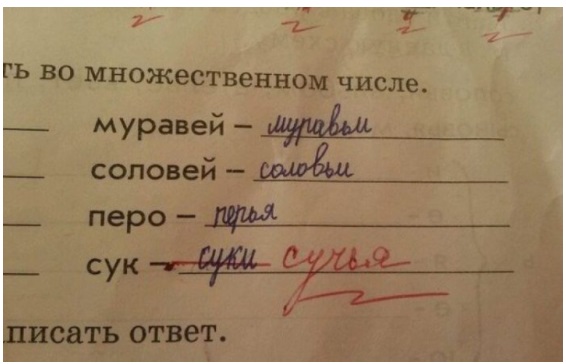 ть во множественном числе.
муравей – муравьи
соловей – соловьи
перо – перья
сук – суки сучья
писать ответ.